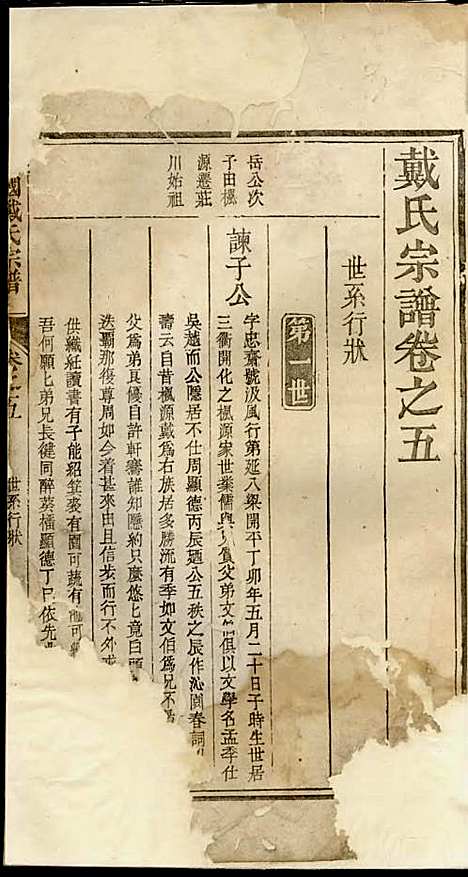 戴氏宗譜卷之五
世系行狀
第一世
岳公次
子由楓
源遷莊
川始祖
諫子公
字忠齋號汲風行第延八梁開平丁卯年五月二十日子時生世居
三衢開化之楓源家世業儒與父弟文俱以文學名孟季仕
吳越而公隱居不仕周顯德丙辰廼公五秩之辰作沁園春詞
壽云自昔楓源戴爲右族居多勝流有季如文伯爲兄不
父爲弟良優自許軒騫誰知隱約只麼悠上竟白頭
迭霸那復尊周如今着甚來由且信步而行不外求
供織紝讀書有子能紹箕裘有園可蔬有可
吾何願匕弟兄長健同醉顯德丁巳依先
戴氏宗譜
卷之五
世系行狀